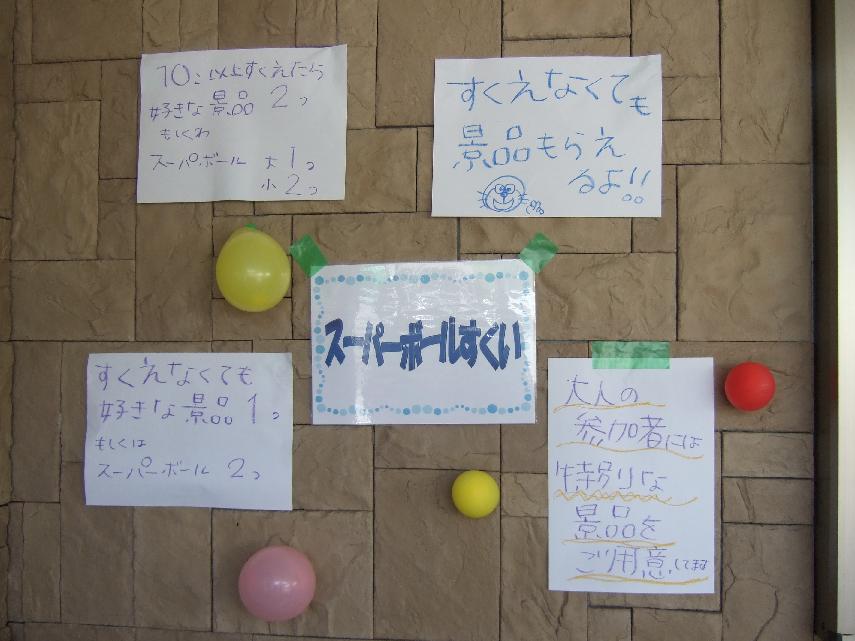 10こ以上すくえたら
好きな景品 2つ
もしくわ
スーパーボール 大1つ
小2つ
すくえなくても
景品もらえ
るよ!!
スーパーボールすくい
すくえなくても
好きな景品 1つ
もしくは
スーパーボール 2つ
大人の
参加者には
特別な
景品を
ご用意してます